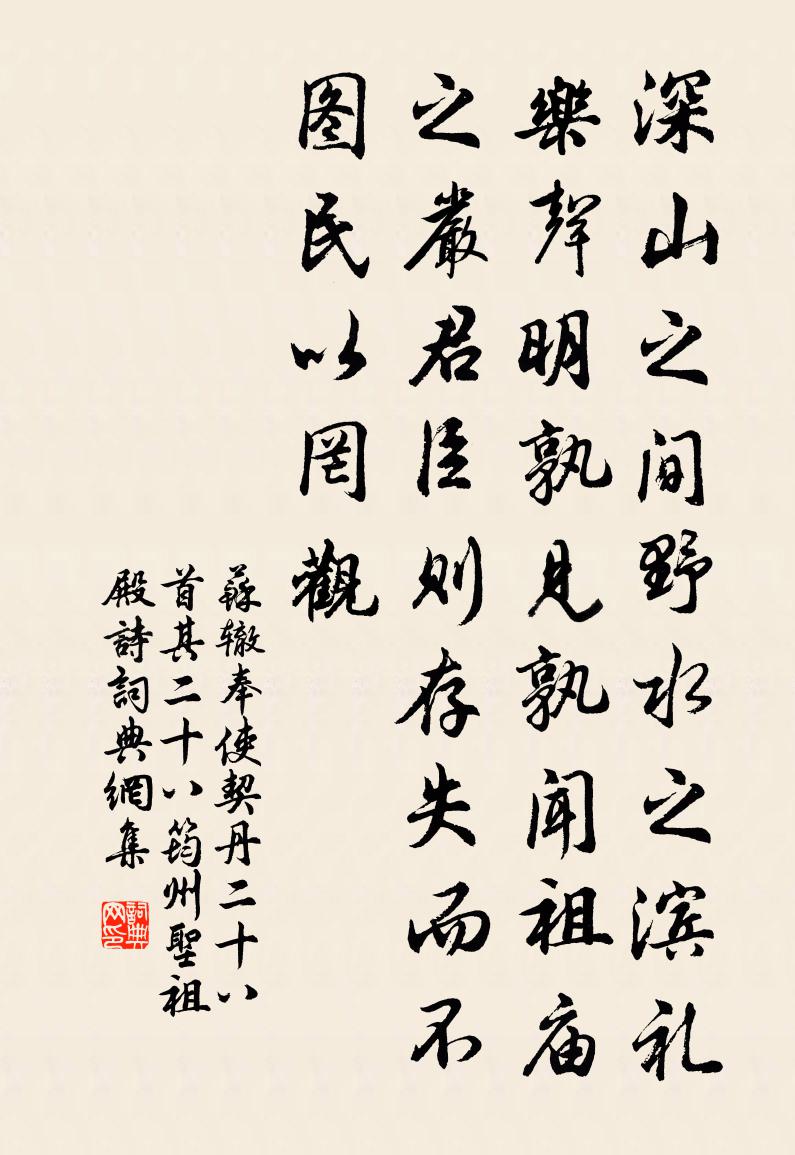 深山之间野水之滨礼
樂聲明孰见孰闻祖庙
之嚴君臣则存失而不
图民以罔觀
蘇辙奉使契丹二十八
首其二十八筠州聖祖
殿詩詞典網集
詞典
网印